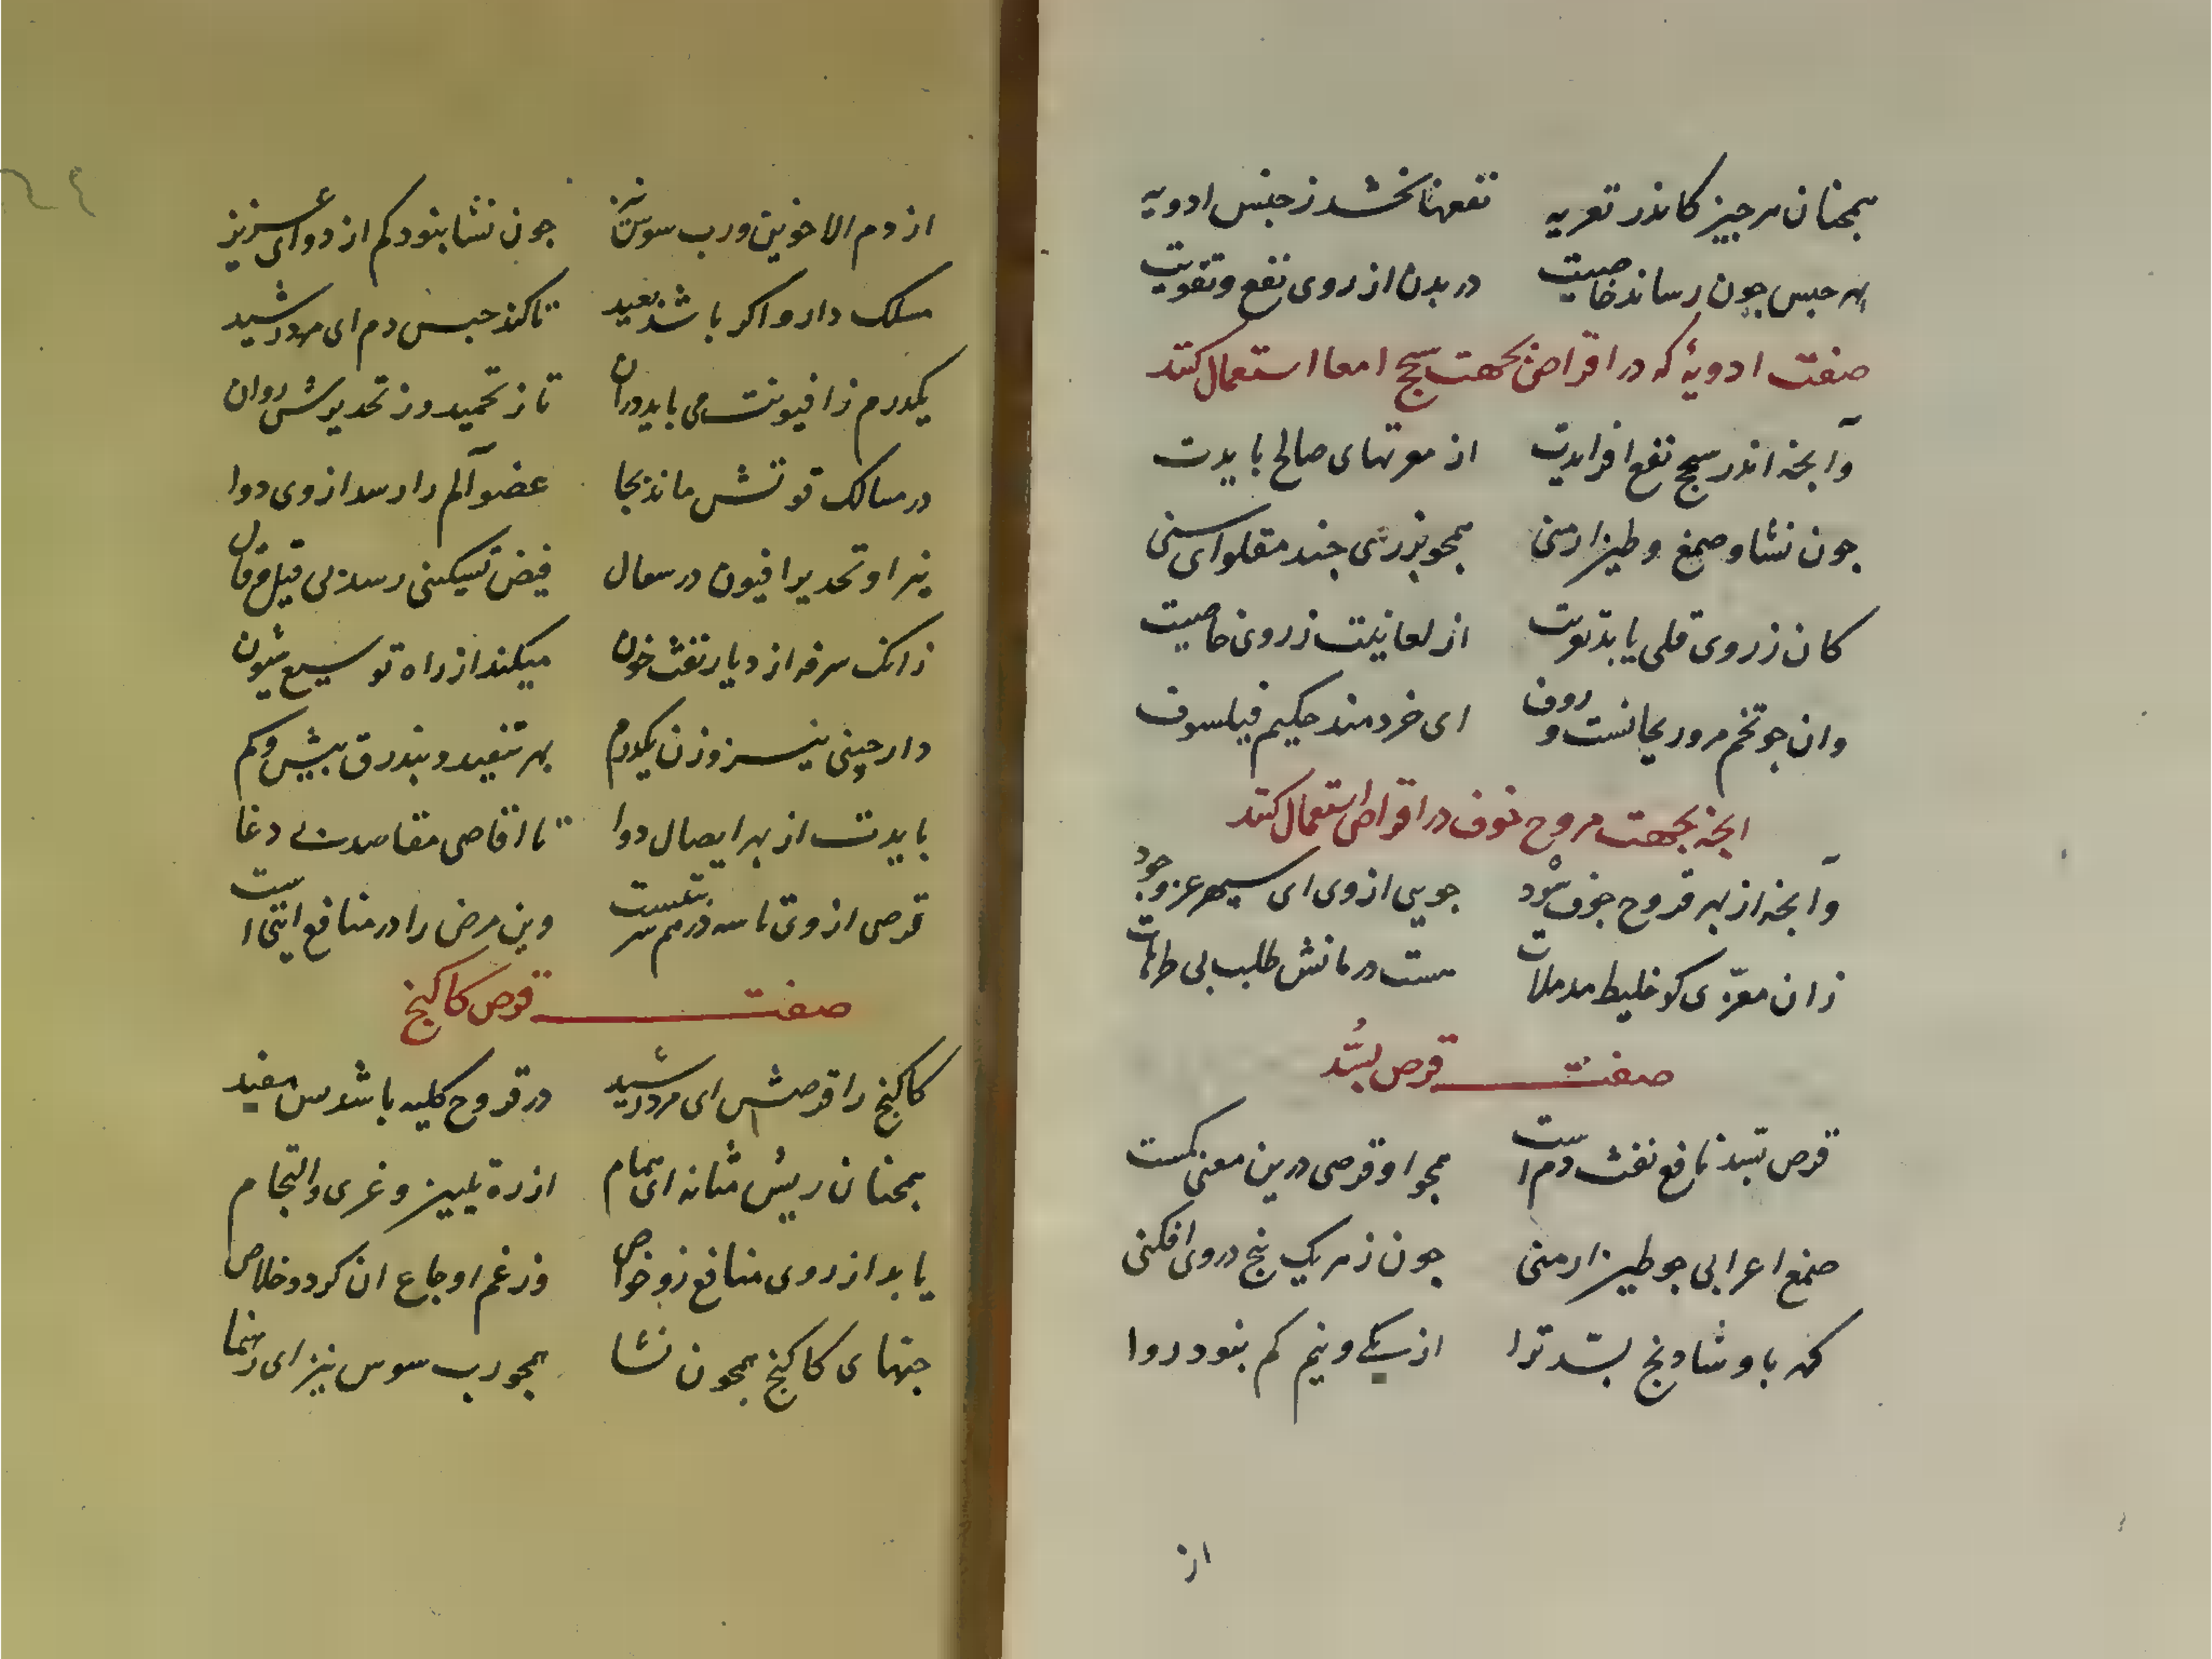 همچنان هر چیز کاندر تغریه نفعها بخشد ز جنس ادویه
بهر حبس چون رساند خاصیت در بدن از روی نفع و تقویت
صفت ادویهٔ که در اقراض بجهت سحج امعا استعمال کنند
وآنچه اندر سحج نفع افزایدت از مغریهای صالح بایدت
چون نشا و صمغ و طین ارمنی همچو بزری چند مقلو ای سنی
کان ز روی قلی یابد تغریت از لعابیت ز روی خاصیت
وان چو تخم مرو ریحانست و روف ای خردمند حکیم فیلسوف
انچه بجهت قروح جوف در اقراص استعمال کنند
وآنچه از بهر قروح جوف سود جویی از وی ای سپهر عز و جود
زان مغری کو خلیط مدملات هست درمانش طلب بی طرهات
صفت قرص بسد
قرص بسد نافع نفث دم است همچو او قرصی درین معنی کمست
صمغ اعرابی چو طین ارمنی چون ز هر یک پنج در وی افکنی
کهربا و شادنج بسد ترا از یکی و نیم کم نبود روا
از
از دم الاخوین و رب سوس نیز چون نشا نبود کم از دو ای عزیز
مسلک دارو اگر باشد بعید تا کند حبس دم ای مرد رشید
یکدرم ز افیونت می باید دران تا ز تخمید و ز تخدیرش روان
در مسالک قوتش ماند بجا عضو آلم را رسد از وی دوا
نیز او تخدیر افیون در سعال فیض تسکینی رساند بی قیل و قال
زانک سرفه از دیار نفث خون میکند از راه توسیع شیون
دارچینی نیز وزن یکدرم بهر تنفید و بذرق بیش و کم
بایدت از بهر ایصال دوا تا اقاصی مقاصد بی دغا
قرصی از وی تا سه درهم شربتست وین مرض را در منافع ایتی است
صفت قرص کاکنج
کاکنج را قرصش ای مرد رشید در قروح کلیه باشد بس مفید
همچنان ریش مثانه ای همام از ره تلیین و غری و التحام
یابد از روی منافع زو خواص وز غم اوجاع ان گردد خلاص
حبهای کاکنج همچون نشا همچو رب سوس نیز ای رهنما